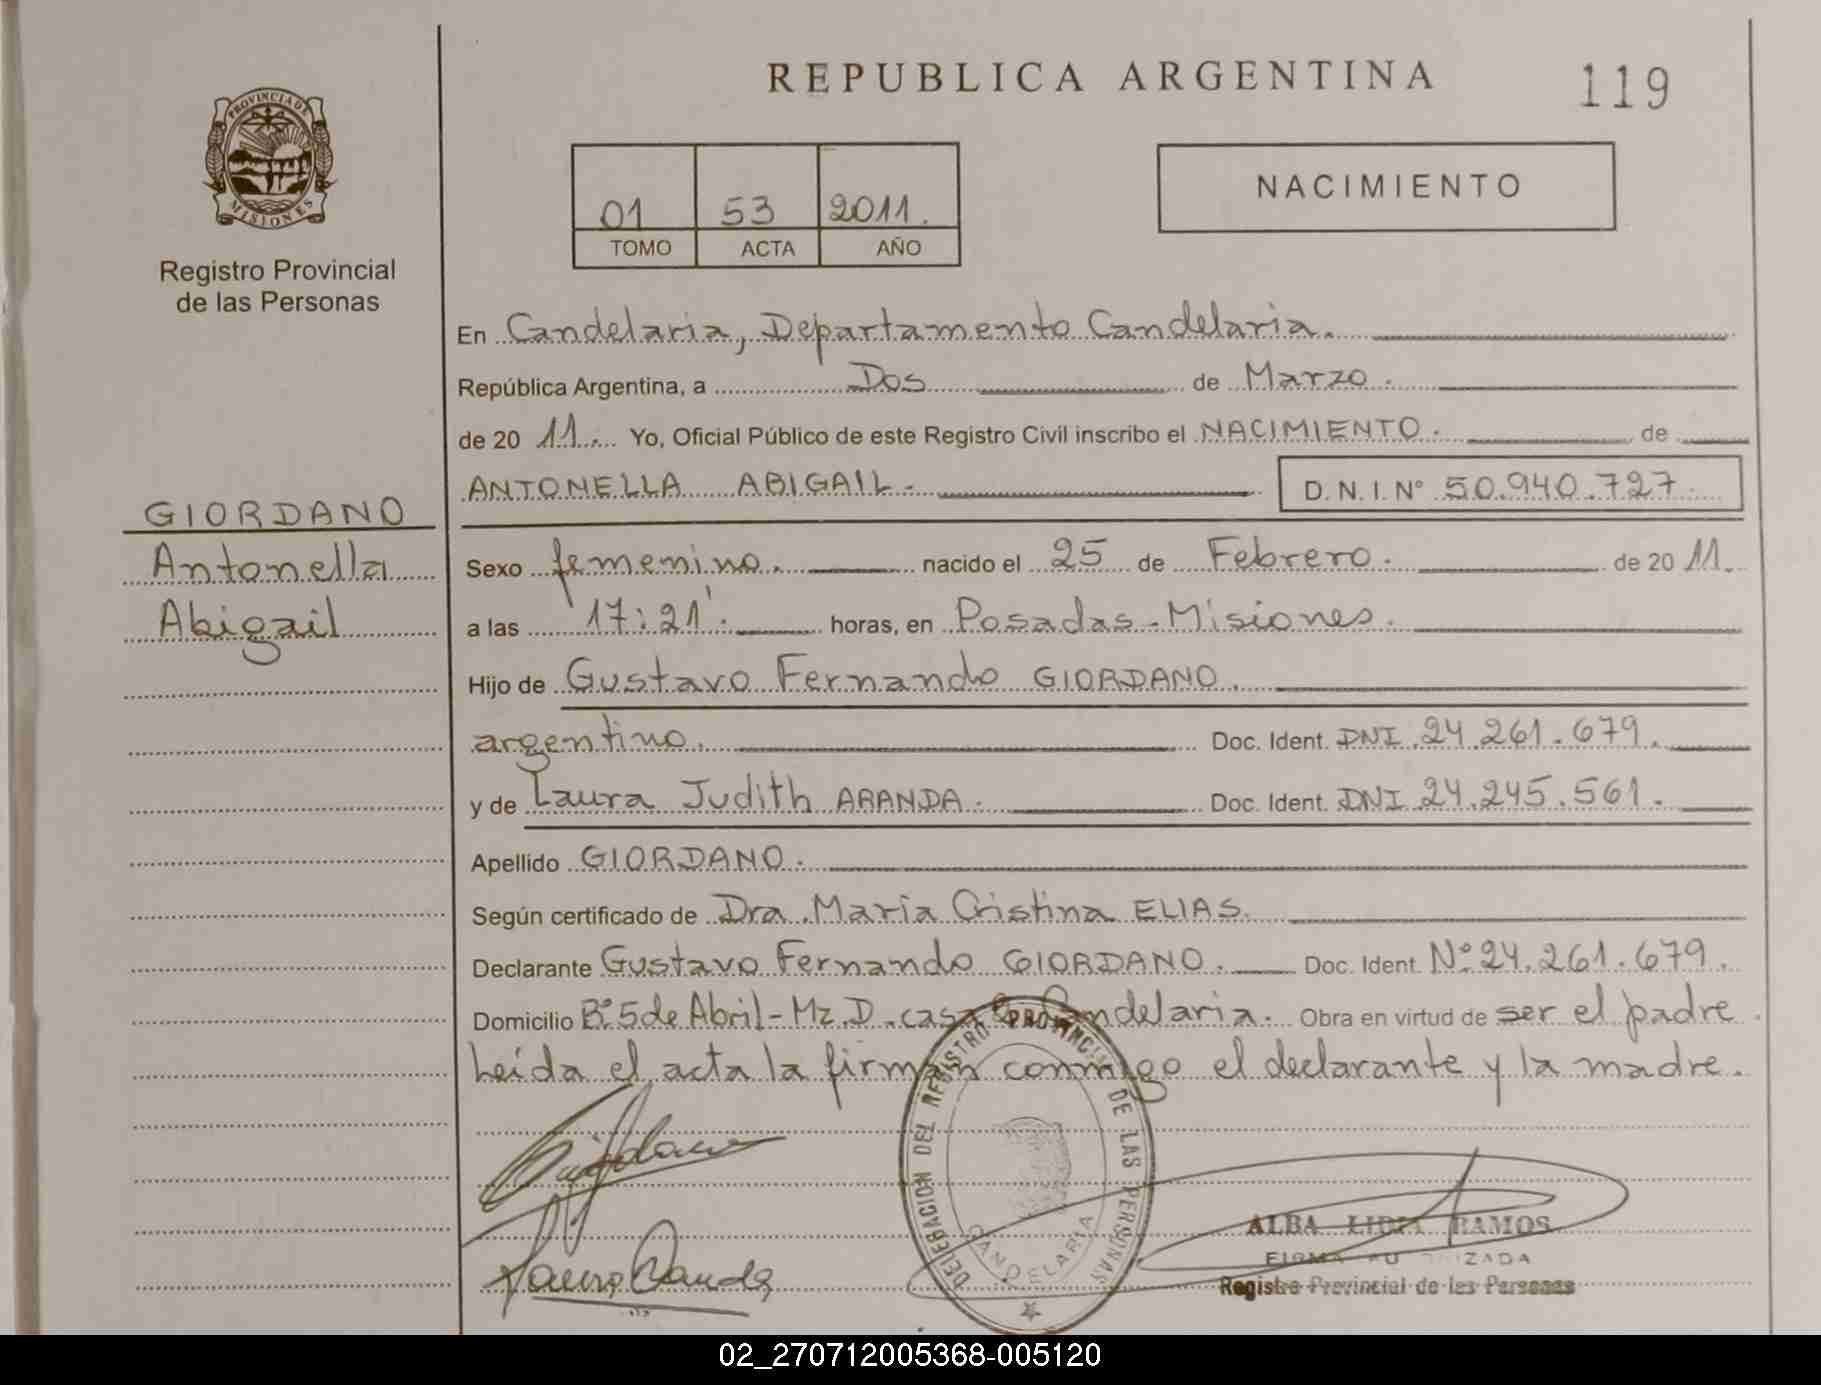 REPUBLICA ARGENTINA
119
PROVINCIA DE
MISIONES
Registro Provincial
de las Personas
01 53 2011.
TOMO ACTA AÑO
NACIMIENTO
En Candelaria, Departamento Candelaria.
República Argentina, a Dos de Marzo.
de 20 11. Yo, Oficial Público de este Registro Civil inscribo el NACIMIENTO. de
ANTONELLA ABIGAIL. D.N.I. Nº 50.940.727.
GIORDANO
Antonella
Abigail
Sexo femenino. nacido el 25 de Febrero. de 20 11.
a las 17:21'. horas, en Posadas-Misiones.
Hijo de Gustavo Fernando GIORDANO.
argentino. Doc. Ident. DNI 24.261.679.
y de Laura Judith ARANDA. Doc. Ident. DNI 24.245.561.
Apellido GIORDANO.
Según certificado de Dra. María Cristina ELIAS.
Declarante Gustavo Fernando GIORDANO. Doc. Ident. Nº 24.261.679.
Domicilio Bº 5 de Abril-Mz D. casa Candelaria. Obra en virtud de ser el padre.
Leída el acta la firman conmigo el declarante y la madre.
DELEGACION DEL REGISTRO PROVINCIAL DE LAS PERSONAS
CANDELARIA
ALBA LIDIA RAMOS
FIRMA AUTORIZADA
Registro Provincial de las Personas
02_270712005368-005120